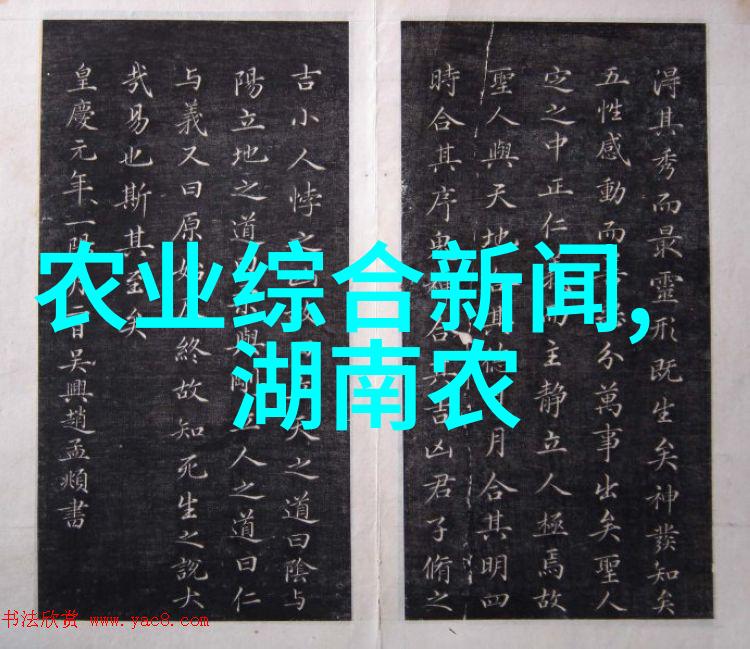 淂其秀而最靈形既生矣神發知矣
五性感動而分萬事出矣聖人
定之中正仁而主靜立人極焉故
聖人與天地合其月合其明四
時合其序合其吉凶君子脩之
吉小人悖之天之道曰陰与
陽立地之道與人之道曰仁
与義又曰原始終故知死生之說大
哉易也斯其至矣
皇慶元年一陽月吳興趙孟頫書
农业综合新闻,
湖南农
书法欣赏 www.yac8.com